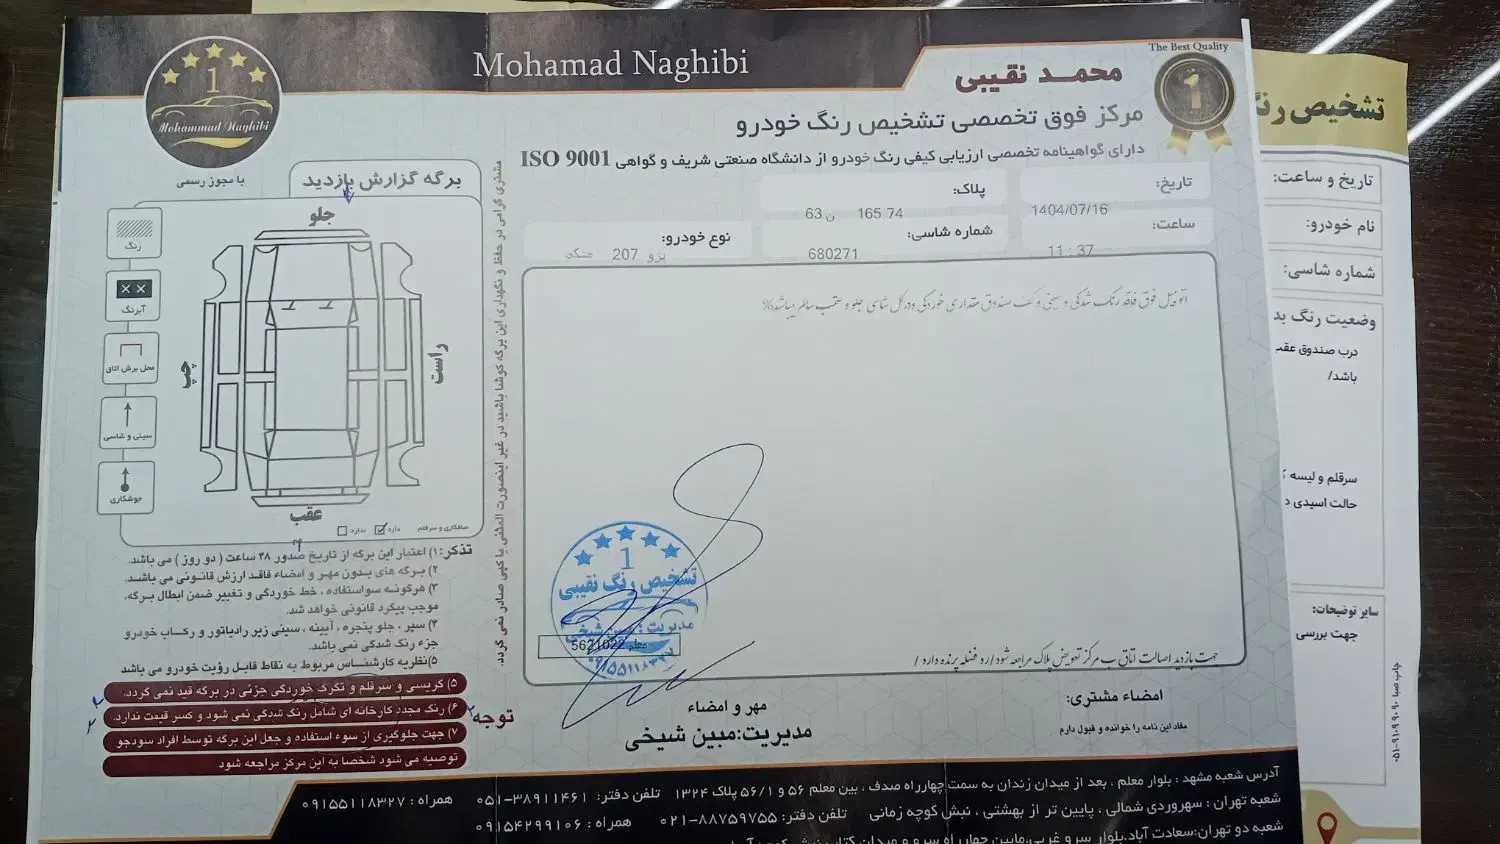 Mohamad Naghibi
The Best Quality
1
1
Mohammad Naghibi
با مجوز رسمی
محمد نقیبی
مرکز فوق تخصصی تشخیص رنگ خودرو
دارای گواهینامه تخصصی ارزیابی کیفی رنگ خودرو از دانشگاه صنعتی شریف و گواهی ISO 9001
تاریخ:
1404/07/16
پلاک:
63 ن 165 74
ساعت:
11 : 37
شماره شاسی:
680271
نوع خودرو:
پژو 207 مشکی
اتومبیل فوق فاقد رنگ شدگی و سینی و کف صندوق مقداری خوردگی ودرکل شاسی جلو و عقب سالم میباشد%
برگه گزارش بازدید
جلو
چپ
راست
عقب
رنگ
آبرنگ
محل برش اتاق
سینی و شاسی
جوشکاری
صافکاری و سرقلم دارد ندارد
مشتری گرامی در حفظ و نگهداری این برگه کوشا باشید در غیر اینصورت المثنی یا کپی صادر نمی گردد.
تذکر: ۱) اعتبار این برگه از تاریخ صدور ۴۸ ساعت ( دو روز ) می باشد.
۲) برگه های بدون مهر و امضاء فاقد ارزش قانونی می باشد.
۳) هرگونه سواستفاده ، خط خوردگی و تغییر ضمن ابطال برگه،
موجب پیگرد قانونی خواهد شد.
۴) سپر ، جلو پنجره ، آیینه ، سینی زیر رادیاتور و رکاب خودرو
جزء رنگ شدگی نمی باشد.
۵) نظریه کارشناس مربوط به نقاط قابل رؤیت خودرو می باشد
۵) گریسی و سرقلم و تگرگ خوردگی جزئی در برگه قید نمی گردد.
۶) رنگ مجدد کارخانه ای شامل رنگ شدگی نمی شود و کسر قیمت ندارد.
۷) جهت جلوگیری از سوء استفاده و جعل این برگه توسط افراد سودجو
توصیه می شود شخصا به این مرکز مراجعه شود
توجه
1
تشخیص رنگ نقیبی
مدیریت: مبین شیخی
معلم 5621022
۰۹۱۵۵۱۱۸۳۲۷
جهت بازدید اصالت اتاق ب مرکز تعویض پلاک مراجعه شود
مهر و امضاء
مدیریت:مبین شیخی
امضاء مشتری:
مفاد این نامه را خوانده و قبول دارم
آدرس شعبه مشهد : بلوار معلم ، بعد از میدان زندان به سمت چهارراه صدف ، بین معلم ۵۶ و ۵۶/۱ پلاک ۱۳۲۴ تلفن دفتر: ۳۸۹۱۱۴۶۱-۰۵۱ همراه : ۰۹۱۵۵۱۱۸۳۲۷
شعبه تهران : سهروردی شمالی ، پایین تر از بهشتی ، نبش کوچه زمانی تلفن دفتر: ۸۸۷۵۹۷۵۵-۰۲۱ همراه : ۰۹۱۵۴۲۹۹۱۰۶
شعبه دو تهران:سعادت آباد،بلوار سرو غربی،مابین چهارراه سرو و میدان کتاب،نبش کوچه
تشخیص رنگ
تاریخ و ساعت:
نام خودرو:
شماره شاسی:
وضعیت رنگ بد
درب صندوق عقب
باشد/
سرقلم و لیسه
حالت اسیدی د
سایر توضیحات:
جهت بررسی